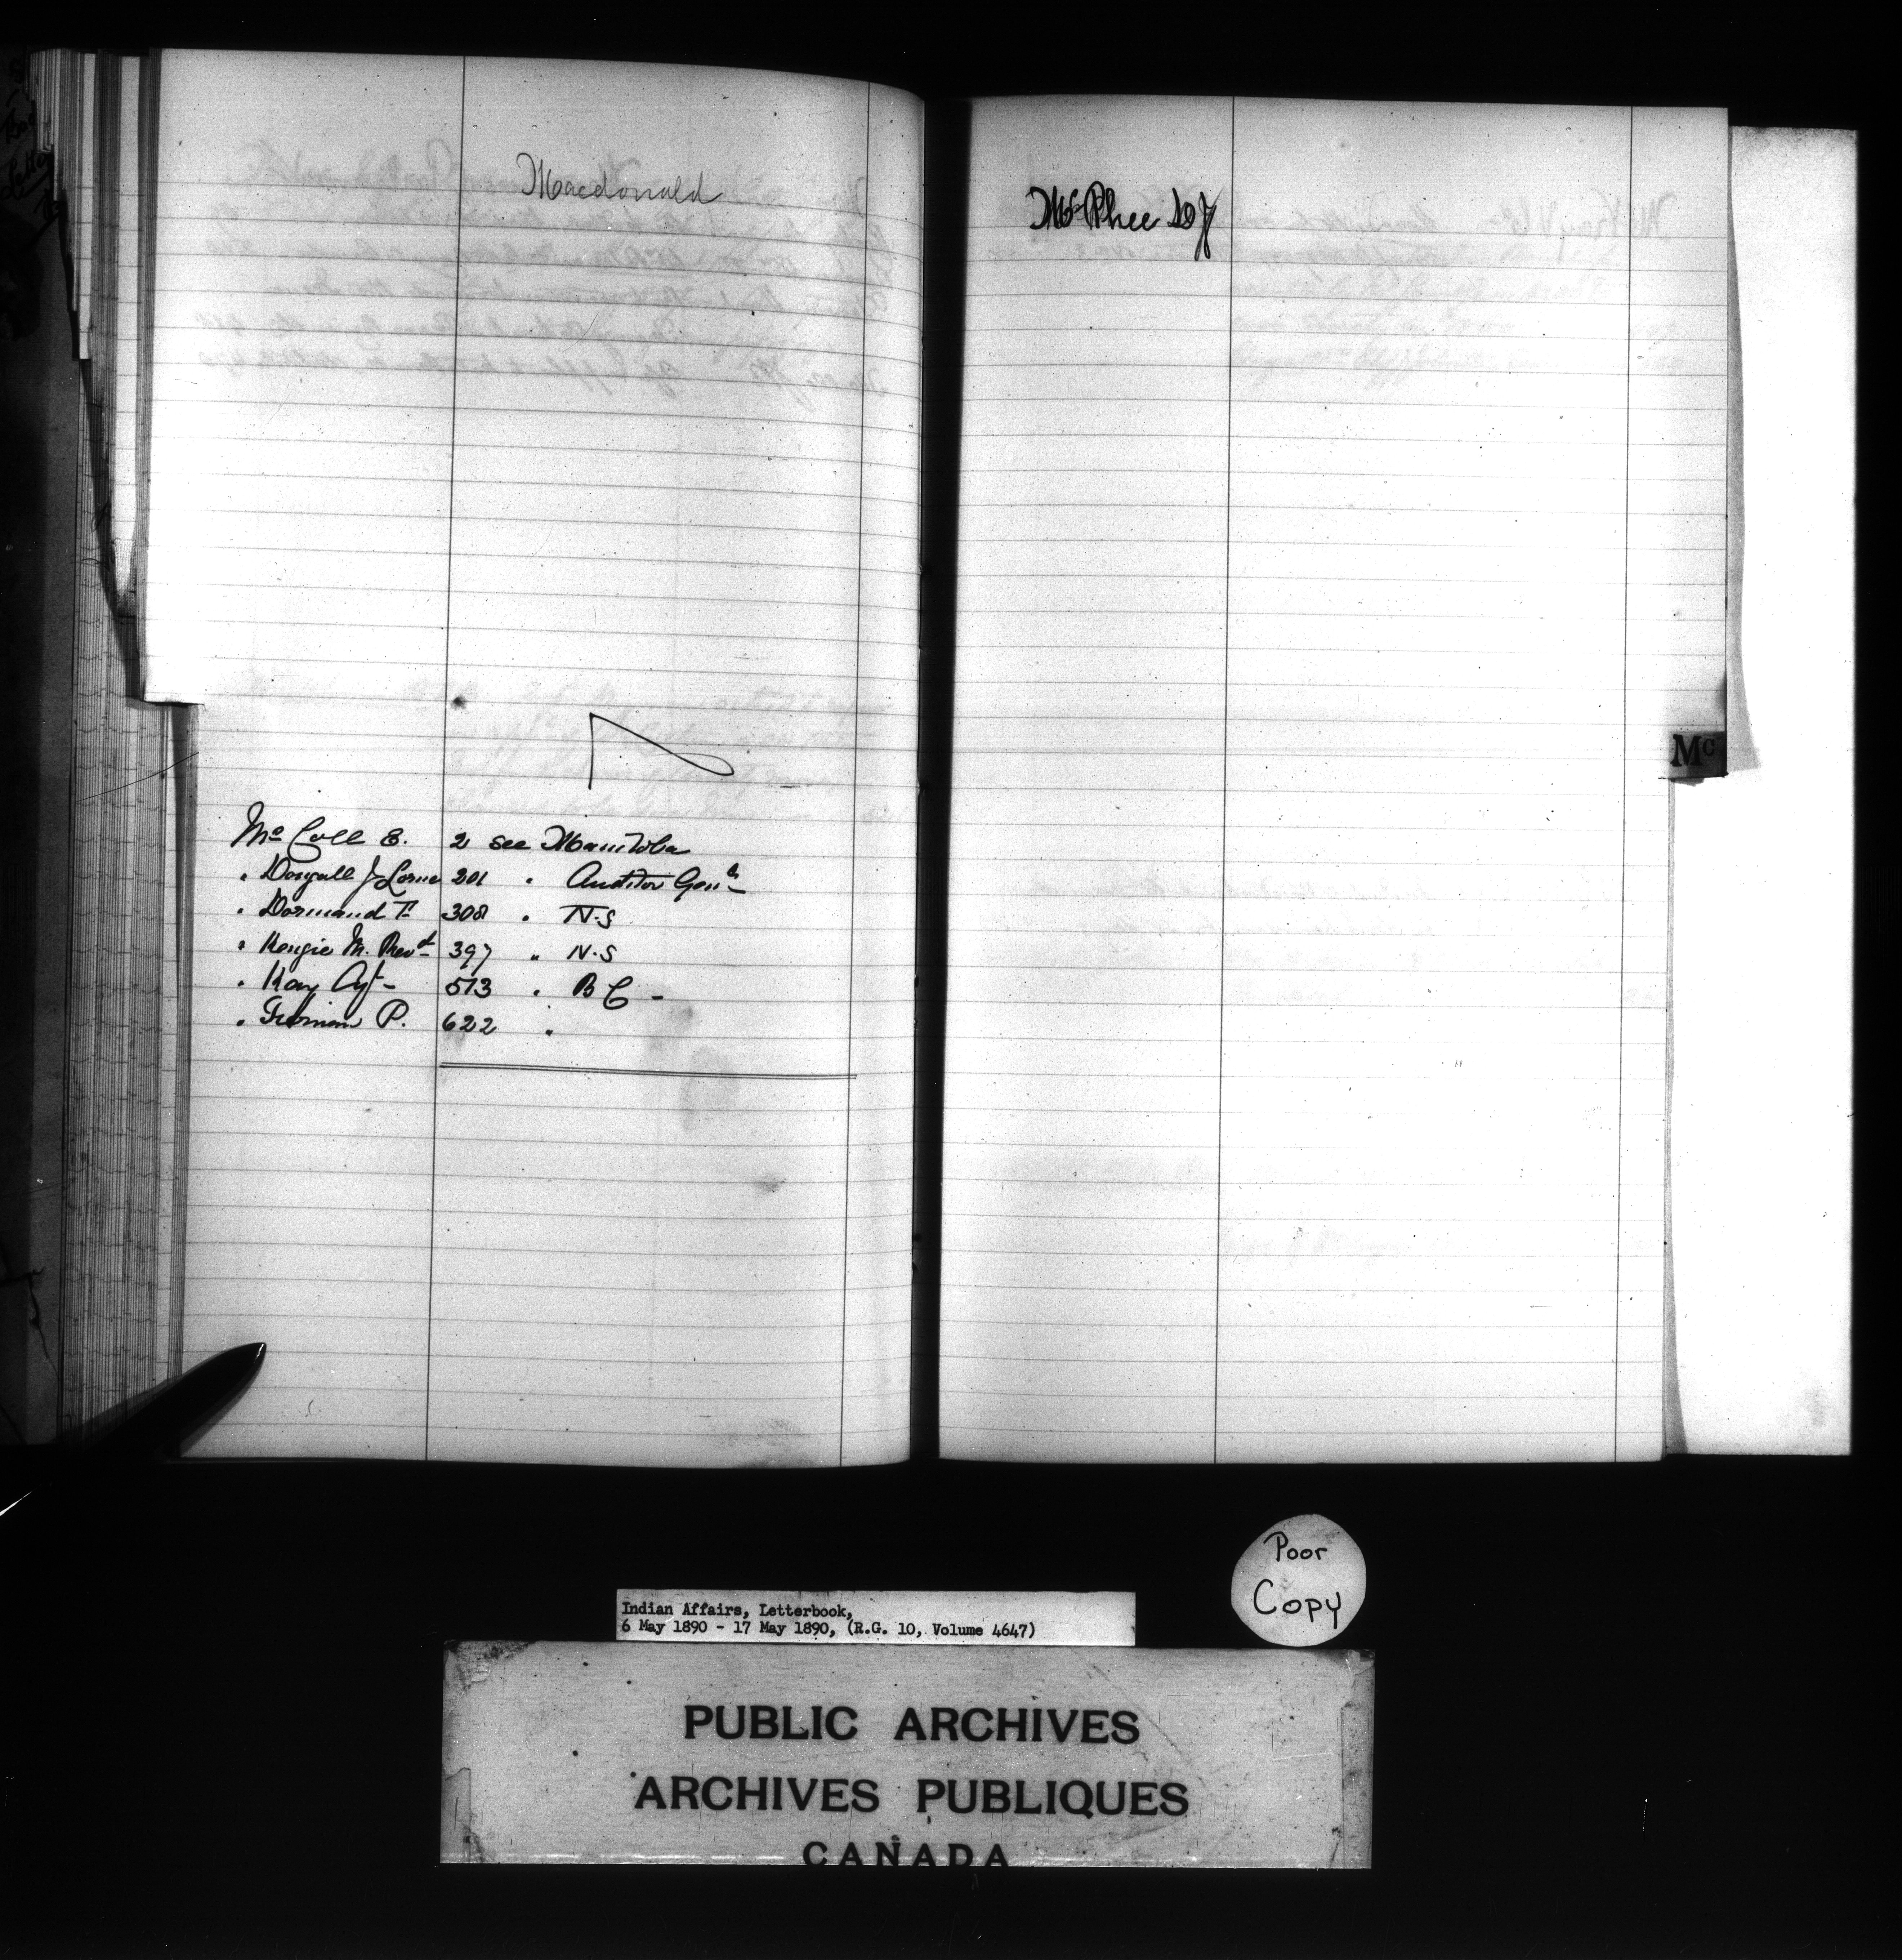 Macdonald
Mc Coll E. 2 see Manitoba
" Dougall J Lorne 201 " Auditor Genl
" Dormand T. 308 " N.S
" Kenzie M. Revd 397 " N.S
" Kay Agt 513 " B C -
" P. 622 "
McPhee
Mc
Poor
Copy
Indian Affairs, Letterbook,
6 May 1890 - 17 May 1890, (R.G. 10, Volume 4647)
PUBLIC ARCHIVES
ARCHIVES PUBLIQUES
CANADA